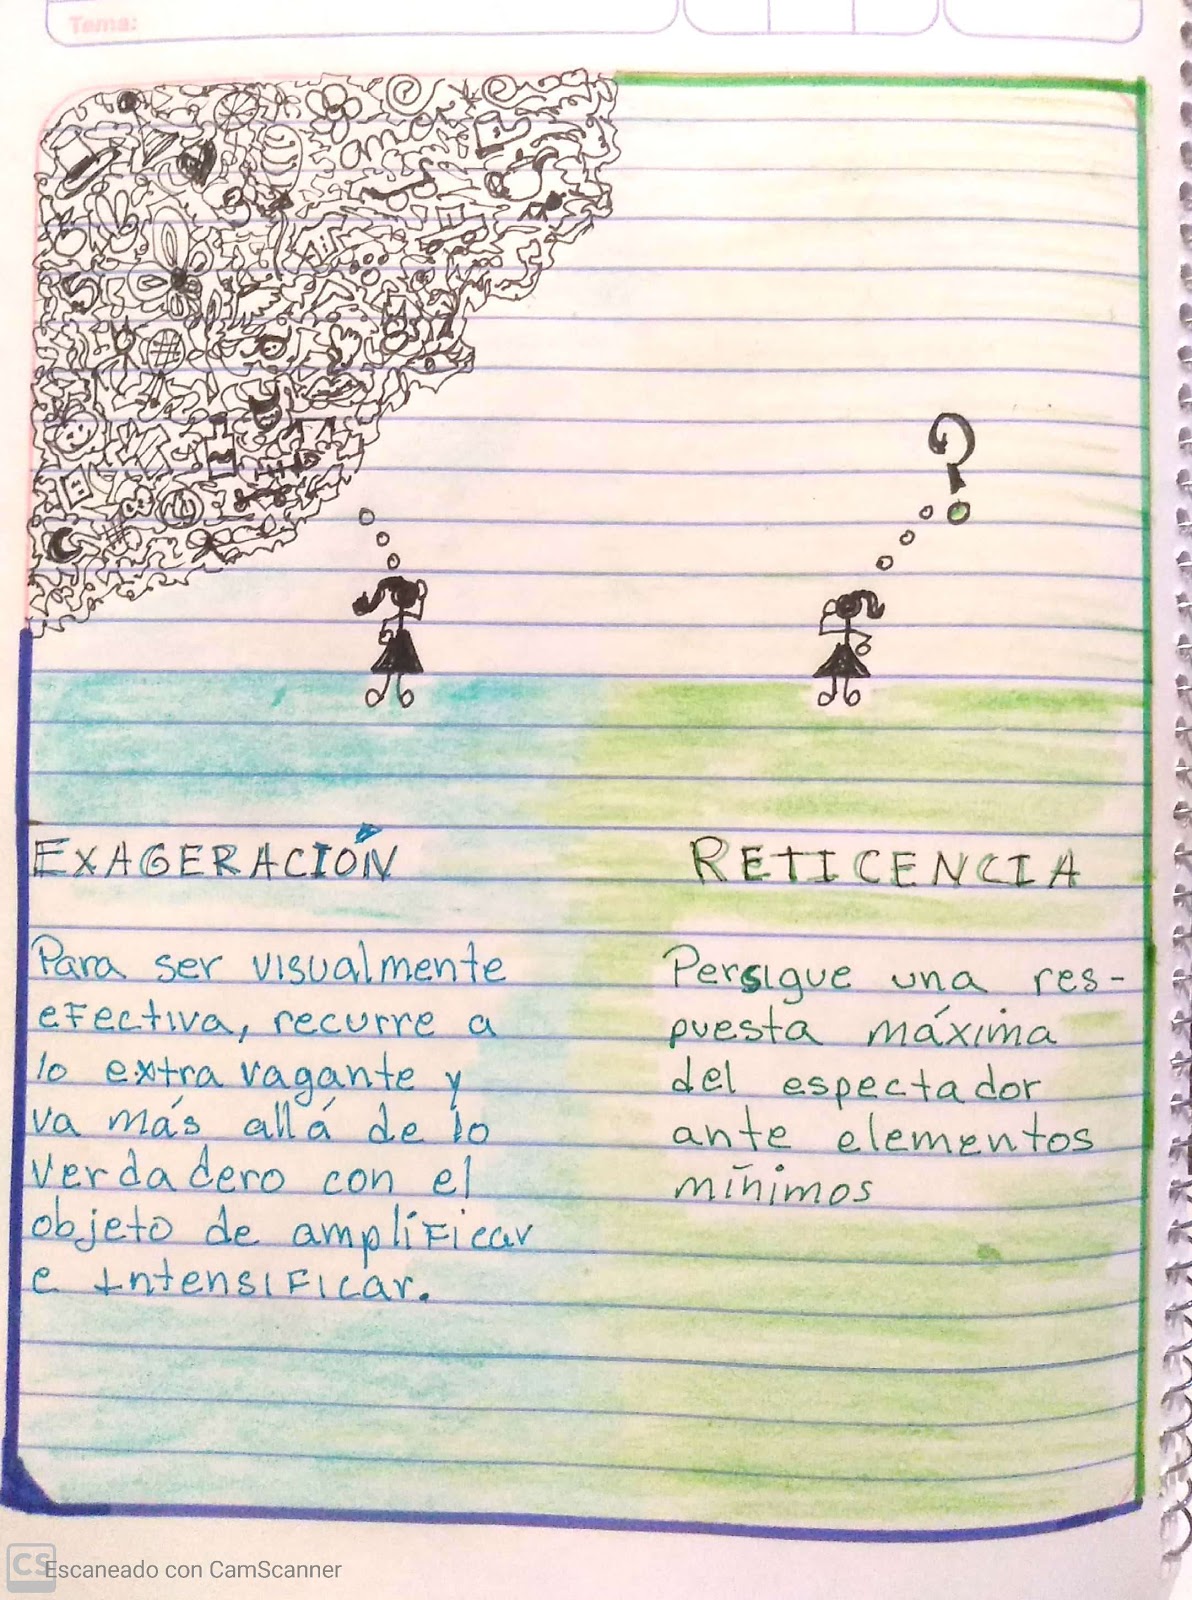 Tema:
EXAGERACIÓN
Para ser visualmente
efectiva, recurre a
lo extravagante y
va más allá de lo
verdadero con el
objeto de amplificar
e intensificar.
RETICENCIA
Persigue una res-
puesta máxima
del espectador
ante elementos
mínimos
CS Escaneado con CamScanner